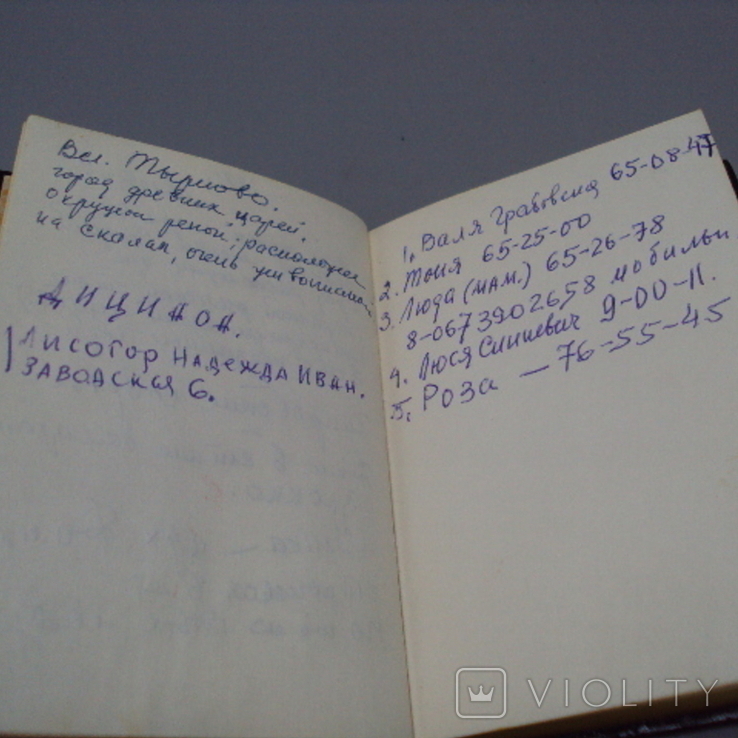 Вел. Тырново.
город древних царей,
окружон рекой, расположен
на скалах, очень
ДИЦИНОН.
Лисогор НАДЕЖДА ИВАН.
ЗАВОДСКАЯ 6.
1. Валя Грабовска 65-08-47
2. Тоня 65-25-00
3. Люда (мам.) 65-26-78
8-0673902658 мобильн
4. Люся 9-00-11.
5. Роза — 76-55-45
VIOLITY